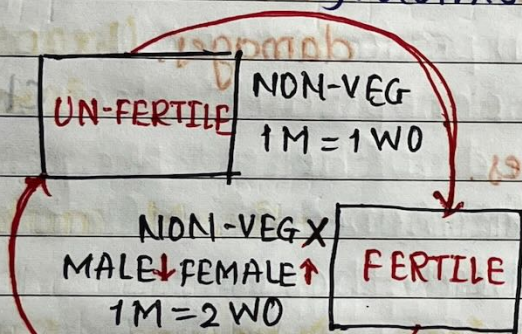 UN-FERTILE
NON-VEG
1M = 1 WO
NON-VEG X
MALE↓ FEMALE↑
1M = 2 WO
FERTILE